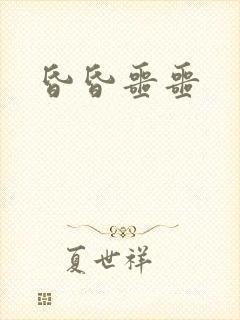 昏昏噩噩
夏世祥